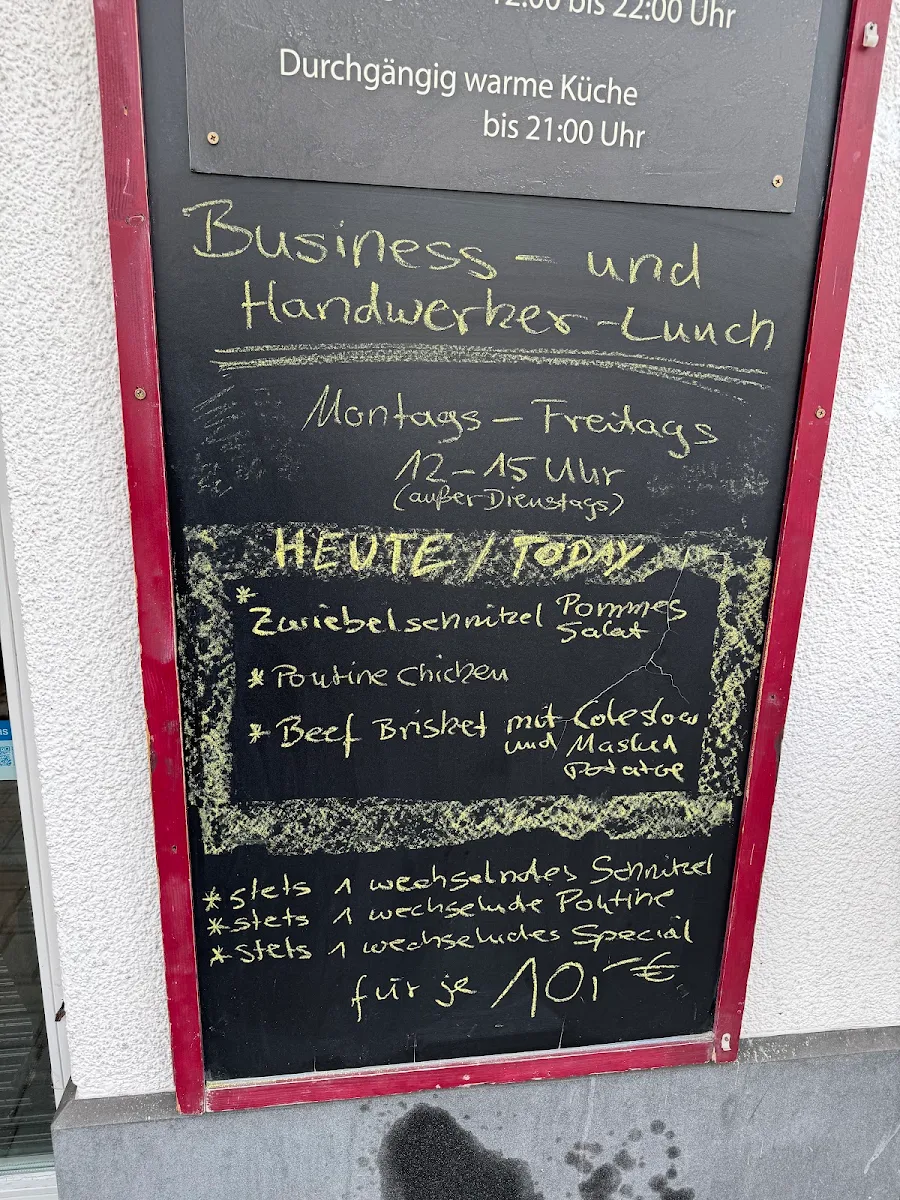 12:00 bis 22:00 Uhr
Durchgängig warme Küche
bis 21:00 Uhr
Business - und
Handwerker-Lunch
Montags - Freitags
12-15 Uhr
(außer Dienstags)
HEUTE / TODAY
* Zwiebelschnitzel Pommes
Salat
* Poutine Chicken
* Beef Brisket mit Coleslaw
und Mashed
Potatoe
* stets 1 wechselndes Schnitzel
* stets 1 wechselnde Poutine
* stets 1 wechselndes Special
für je 10,- €